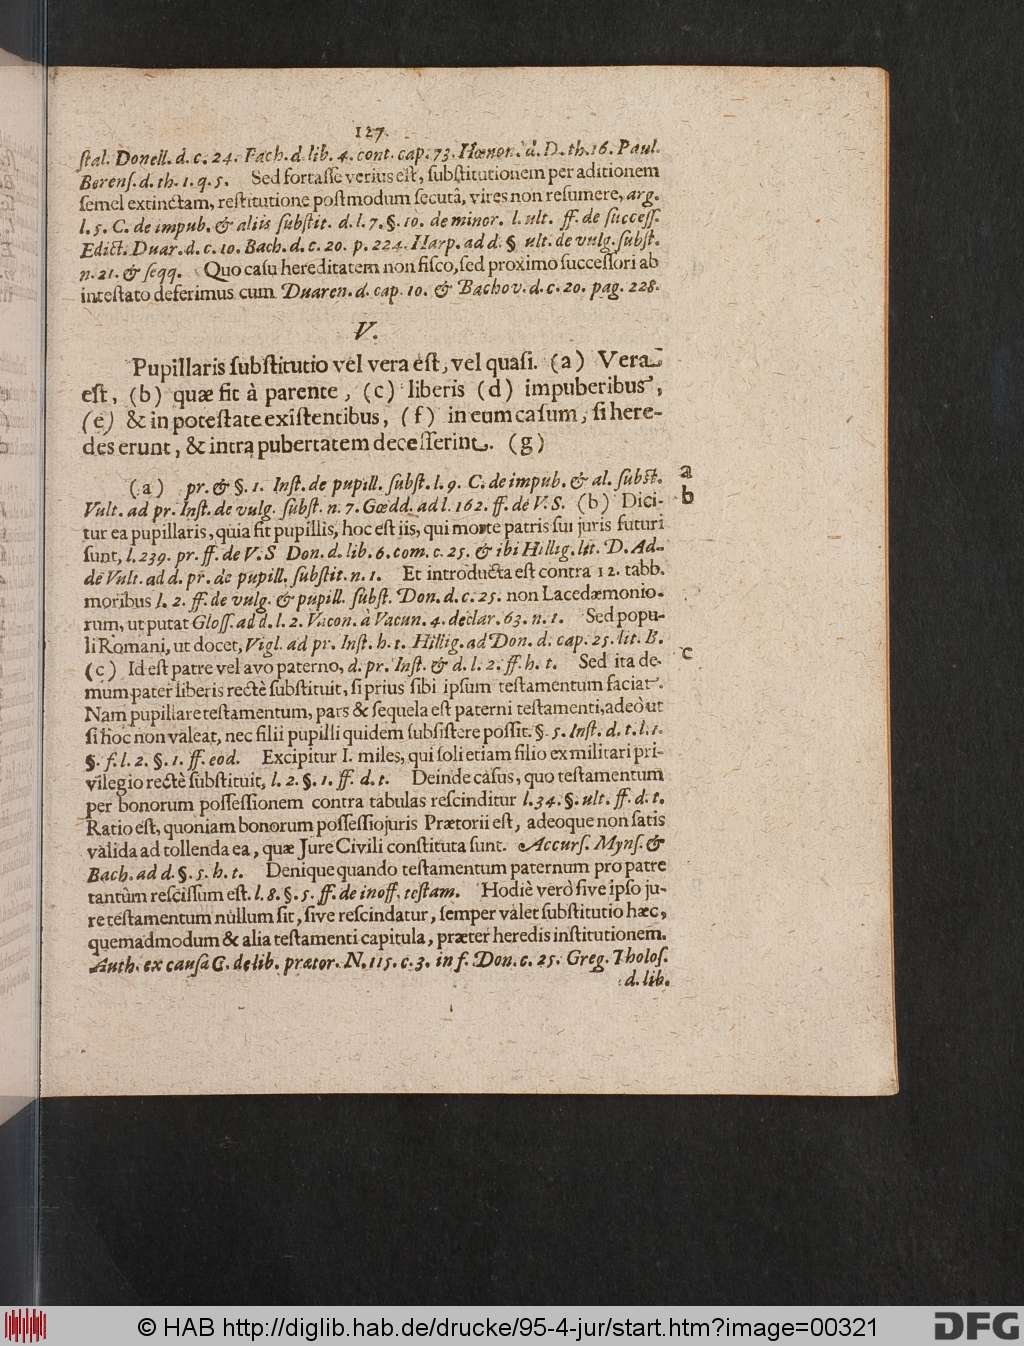 127.
ſtal. Donell. d. c. 24. Fach. d. lib. 4. cont. cap. 73. Hœnor. d. D. th. 16. Paul.
Berenſ. d. th. 1. q. 5. Sed fortaſſe verius eſt, ſubſtitutionem per aditionem
ſemel extinctam, reſtitutione poſtmodum ſecutâ, vires non reſumere, arg.
l. 5. C. de impub. & aliis ſubſtit. d. l. 7. §. 10. de minor. l. ult. ff. de ſucceſſ.
Edict. Duar. d. c. 10. Bach. d. c. 20. p. 224. Harp. ad d. § ult. de vulg. ſubſt.
n. 21. & ſeqq. Quo caſu hereditatem non fiſco, ſed proximo ſucceſſori ab
inteſtato deferimus cum Duaren. d. cap. 10. & Bachov. d. c. 20. pag. 228.
V.
Pupillaris ſubſtitutio vel vera eſt, vel quaſi. (a) Vera
eſt, (b) quæ fit à parente, (c) liberis (d) impuberibus,
(e) & in poteſtate exiſtentibus, (f) in eum caſum, ſi here-
des erunt, & intra pubertatem deceſſerint. (g)
(a) pr. & §. 1. Inſt. de pupill. ſubſt. l. 9. C. de impub. & al. ſubſt. a
Vult. ad pr. Inſt. de vulg. ſubſt. n. 7. Gœdd. ad l. 162. ff. de V. S. (b) Dici- b
tur ea pupillaris, quia fit pupillis, hoc eſt iis, qui morte patris ſui juris futuri
ſunt, l. 239. pr. ff. de V. S Don. d. lib. 6. com. c. 25. & ibi Hillig. lit. D. Ad-
de Vult. ad d. pr. de pupill. ſubſtit. n. 1. Et introducta eſt contra 12. tabb.
moribus l. 2. ff. de vulg. & pupill. ſubſt. Don. d. c. 25. non Lacedæmonio-
rum, ut putat Gloſſ. ad d. l. 2. Vacon. à Vacun. 4. declar. 63. n. 1. Sed popu-
li Romani, ut docet, Vigl. ad pr. Inſt. h. t. Hillig. ad Don. d. cap. 25. lit. B.
(c) Id eſt patre vel avo paterno, d. pr. Inſt. & d. l. 2. ff. h. t. Sed ita de- c
mum pater liberis rectè ſubſtituit, ſi prius ſibi ipſum teſtamentum faciat.
Nam pupillare teſtamentum, pars & ſequela eſt paterni teſtamenti, adeò ut
ſi hoc non valeat, nec filii pupilli quidem ſubſiſtere poſſit. §. 5. Inſt. d. t. l. 1.
§. f. l. 2. §. 1. ff. eod. Excipitur I. miles, qui ſoli etiam filio ex militari pri-
vilegio rectè ſubſtituit, l. 2. §. 1. ff. d. t. Deinde caſus, quo teſtamentum
per bonorum poſſeſſionem contra tabulas reſcinditur l. 34. §. ult. ff. d. t.
Ratio eſt, quoniam bonorum poſſeſſio juris Prætorii eſt, adeoque non ſatis
valida ad tollenda ea, quæ Jure Civili conſtituta ſunt. Accurſ. Mynſ. &
Bach. ad d. §. 5. h. t. Denique quando teſtamentum paternum pro patre
tantùm reſciſſum eſt. l. 8. §. 5. ff. de inoff. teſtam. Hodiè verò ſive ipſo ju-
re teſtamentum nullum ſit, ſive reſcindatur, ſemper valet ſubſtitutio hæc,
quemadmodum & alia teſtamenti capitula, præter heredis inſtitutionem.
Auth. ex cauſa C. de lib. prætor. N. 115. c. 3. in f. Don. c. 25. Greg. Tholoſ.
d. lib.
© HAB http://diglib.hab.de/drucke/95-4-jur/start.htm?image=00321
DFG